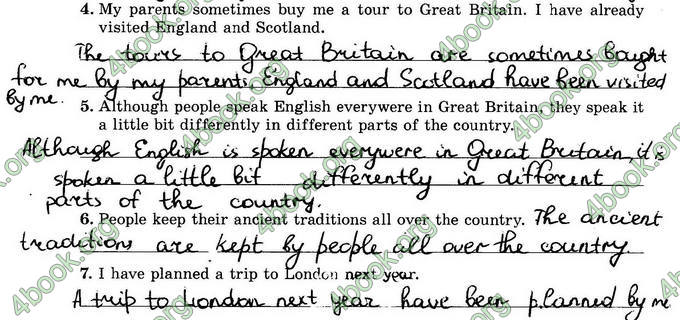 4. My parents sometimes buy me a tour to Great Britain. I have already
visited England and Scotland.
The tours to Great Britain are sometimes bought
for me by my parents. England and Scotland have been visited
by me.
5. Although people speak English everywere in Great Britain, they speak it
a little bit differently in different parts of the country.
Although English is spoken everywere in Great Britain, it's
spoken a little bit differently in different
parts of the country.
6. People keep their ancient traditions all over the country. The ancient
traditions are kept by people all over the country.
7. I have planned a trip to London next year.
A trip to London next year have been planned by me
4book.org
4book.org
4book.org
4book.org
4book.org
4book.org